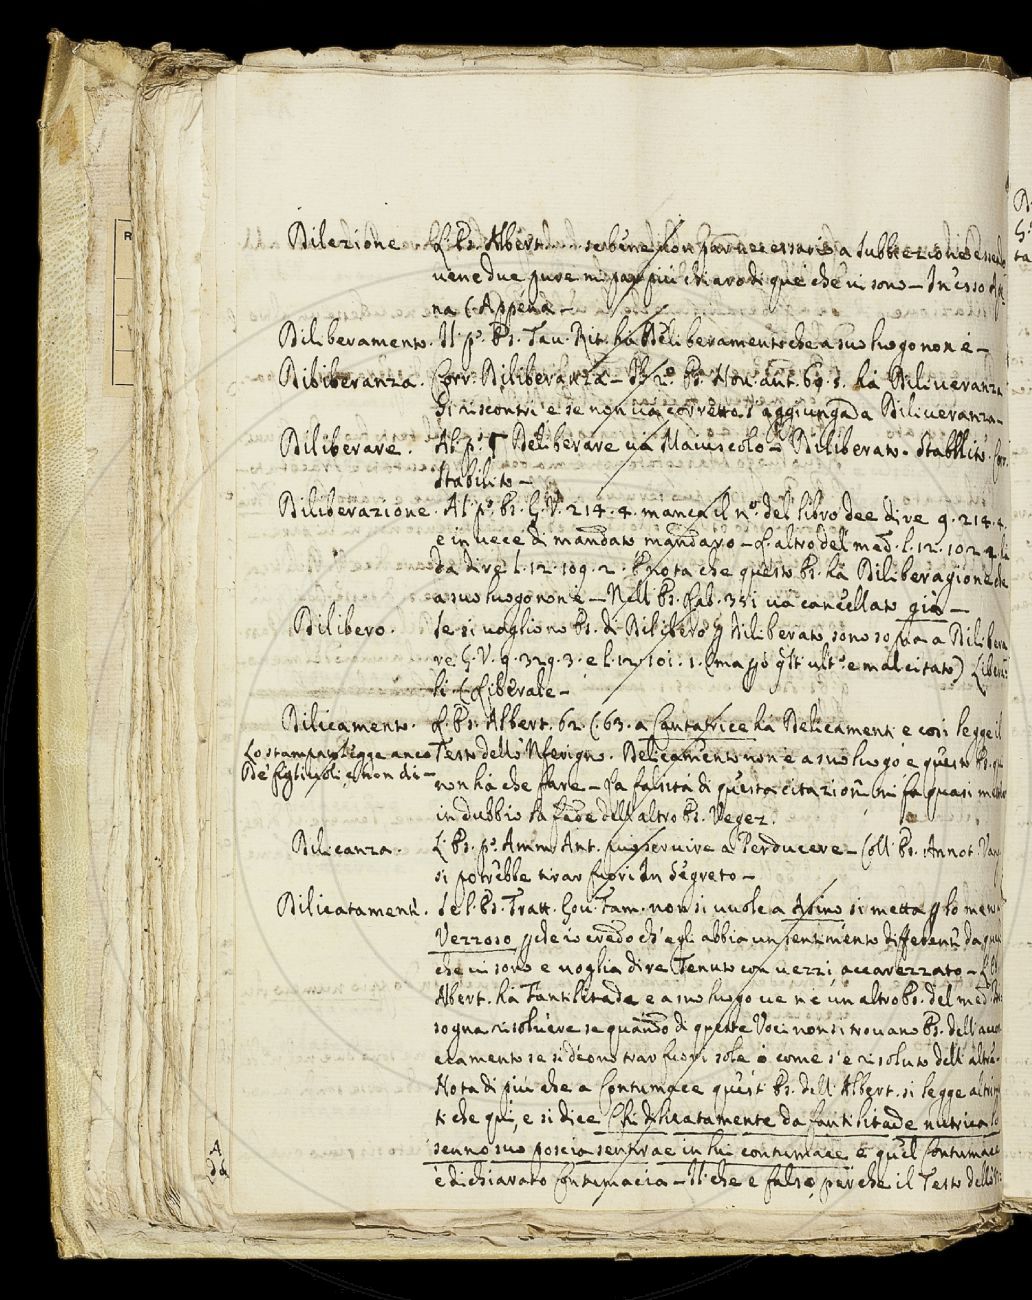 Dilezione. L'Es. Albert. sebbene non par necessario a subbiezione essendo
vene due pure mi par più chiaro di quei che vi sono - In esso
na (. Appena -
Diliberamento. Il p.º Es. Tav. Rit. ha Deliberamento che a suo luogo non è -
Dibiberanza. Corr. Diliberanza - Il 2.º Es. Nov. ant. 69. 5. ha Diliveranza
Si riscontri e se non va corretto s'aggiunga da Diliveranza -
Diliberare. Al p.º Deliberare va Maiuscolo - Diliberato. Stabllito. Corr.
Stabilito -
Diliberazione. Al p.º Es. G. V. 214. 4. manca il n.º del libro dee dire 9. 214. 4.
e in vece di mandato mandaro - L'altro del med. l. 12. 102. 2.
da dire l. 12. 109. 2. Nota che questo Es. ha Diliberagione che
a suo luogo non è - Nell'Es. Fab. 351 va cancellato già -
Dilibero. Se si vogliono Es. di Dilibero Diliberato sono so a Dilibera
re G. V. 9. 329. 3. e l. 12. 101. 1. (ma ult.º e mal citato)
li (. Liberale -
Dilicamento. L'Es. Albert. 62. (. 63. a Cantatrice ha Delicamenti e così legge il
Lo stampato legge anco Testo dello 'Nferigno. Delicamento non è a suo luogo e questo Es. qui
De' figliuoli, e non di - non ha che fare - La falsità di questa citazione mi fa quasi metter
in dubbio la fede dell'altro Es. Vegez.
Dilicanza. L'Es. p.º Amm. Ant. può servire a Perducere - Coll'Es. Annot. Vang.
si potrebbe tirar fuori In segreto -
Dilicatamente. Se l'Es. Tratt. Gov. Fam. non si vuole a Asino si metta lo men
Vezzoso che io credo ch'egli abbia un sentimento differente da quei
che vi sono e voglia dire Tenuto con vezzi, accarezzato -
Albert. ha Fantilitade e a suo luogo ve n'è un altro Es. del med.
sogna risolvere se quando di queste Voci non si trovano Es. dell'
camento se si deono trar fuori sole o come s'è risoluto dell'altre.
Nota di più che a Contumace quest'Es. dell'Albert. si legge altrim
ti che qui, e si dice Chi dilicatamente da fantilitade nutrica lo
senno suo poscia sentirae in lui contumace e quel Contumace
è dichiarato Contumacia - Il che è falso, perchè il Testo dello
A
da